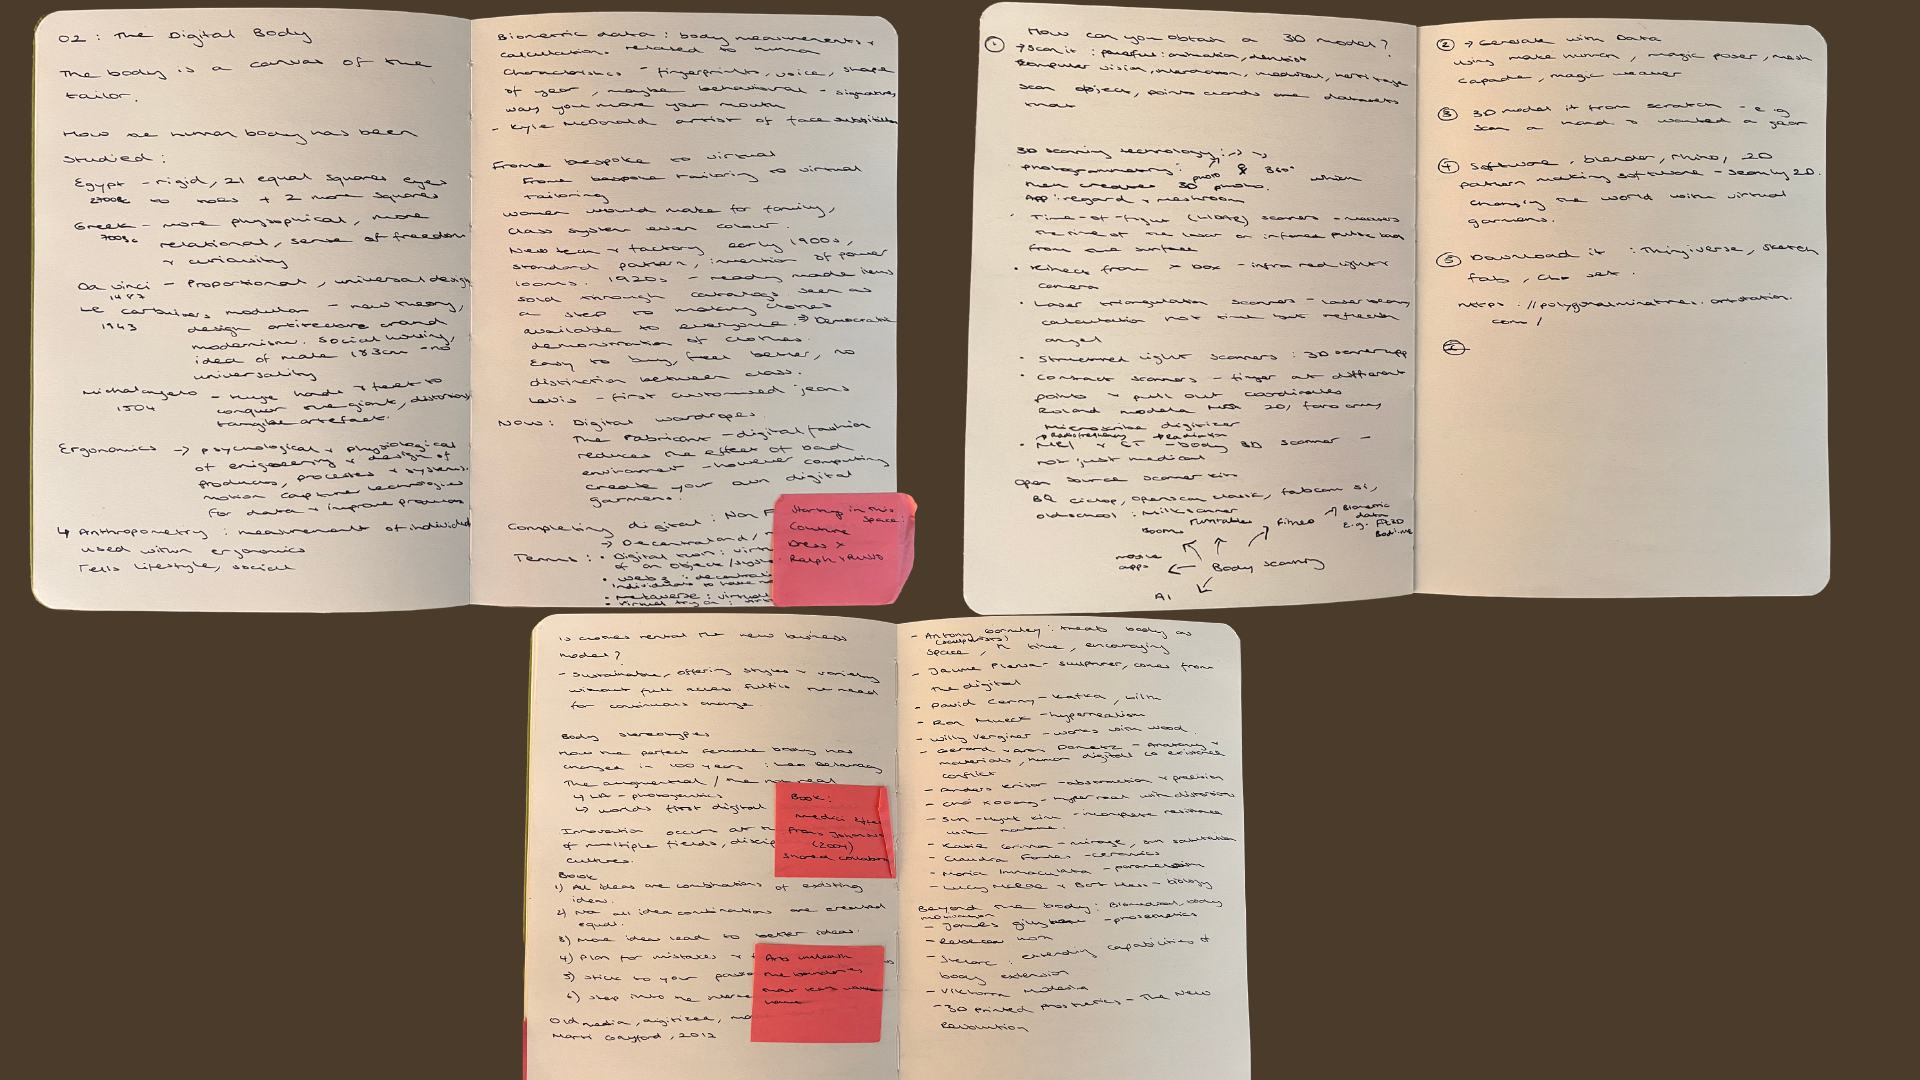 02 : The Digital Body
The body is a canvas of the
tailor.
How the human body has been
studied :
Egypt - rigid, 21 equal squares eyes
to toes + 2 more squares
Greek - more physophical, more
700BC relational, sense of freedom
+ curiousity
Da Vinci - Proportional, universal design
1487
Le modular - new theory,
1943 design
modernism. Social housing,
idea of male 183cm - no
universality
Michalangelo - Huge hands + feet to
1504 conquer the giant,
tangible artefact.
Ergonomics → psychological + physiological
of engineering + design of
products, processes + systems.
motion capture technologies
for data + improve products
↳ Anthropometry : measurement of individual
used within ergonomics
Tells lifestyle, social
Biometric data : body measurements +
calculations related to human
characteristics - fingerprints, voice, shape
of year, maybe behavioral - signature,
way you move your mouth
- Kyle McDonald artist of face substitution
From bespoke to virtual
From bespoke tailoring to virtual
tailoring
Women would make for family,
class system even colour.
New tech + factory early 1900s,
standard pattern, invention of power
looms. 1920s - ready made items
sold through catalogs seen as
a step to making clothes
available to everyone. → Democratic
demonstration of clothes.
Easy to buy, feel better, no
distinction between class.
Levis - first customised jeans
Now : Digital wardropes
The Fabricant - digital fashion
reduces the effect of bad
enviroment - however computing
create your own digital
garmens.
Completing digital : Non F
→ Decentraland,
Terms : • Digital twin : virtu
of an object/
• web3 : decentrali
individuals to have
• Metaverse : virtual
• Virtual try on :
Starting in this
space :
Couture
Dress X
Ralph + Russo
① How can you obtain a 3D model?
→ Scan it : powerful : animation, dentist
computer vision, interaction, medical, heritage
scan object, points clouds are datasets
that
3D scanning technology : →
photogrammetry : photo & 360°
then creates 3D photo. which
App : regard + meshroom
• Time-of-flight (LIDAR) scanners - measures
the time of the laser or infared pulse back
from one surface
• Kinect from x box - infra red light +
camera
• Laser triangulation scanners - laser beam,
calculation not time but reflection
angel
• Structured light scanners : 3D scanner app
• Contract scanners - finger at different
points + pull out coordinates
Roland modela 20, faro arm,
Microscribe digitizer
→ Radiofrequency → Radiation
• MRI + CT - body 3D scanner -
not just medical
Open source scanner kits
BQ ciclop, openscan classic, fabscan Si,
oldschool : Milkscanner
Room runtables fitness → Biometric
data
e.g. Fit3D
mobile
apps ← Body scanning
AI
② → Generate with Data
using make human, magic poser, mesh
capade, magic weaver
③ 3D model it from scratch - e.g
scan a hand & wanted a gear
④ Software, blender, rhino, 2D
pattern making software - seamly 2D.
Changing the world with virtual
garmens.
⑤ Download it : Thingiverse, Sketch
fab,
com/
Is clothes rental the new business
model?
- Sustainable, offering styles + variety
without full access. Fulfils the need
for continuous change.
Body stereotypes
How the perfect female body has
changed in 100 years :
The / the not real
↳ photogenics
↳ worlds first digital
Innovation occurs at th
of multiple fields, discip
cultures.
Book
1) All ideas are combinations of existing
ideas.
2) Not all idea combinations are created
equal.
3) More ideas lead to better ideas.
4) Plan for mistakes +
5) Stick to your passio
6) Step into the
Old media, digitized,
2012
Book :
Medici Effe
Frans Johansso
(2004)
Shared collabora
Arts unleash
the boundaries
that
- Antony Gormley : treats body as
(sculptures)
space, in time, encouraging
- Jaume Plensa - sculpturer, comes from
the digital
- David Cerny - Kafka,
- Ron Mueck - hyperrealism
- Willy Verginer - works with wood.
- Gerard + Aron Demetz - Anatomy +
materials, human digital co existence
conflict
- Anders Krisar - abstraction + precision
- Choi Xooang - hyper real with distortion
- Sun-Hyuk Kim - incomplete resistance
with nature.
- Katie Grinnan - mirage, sun salutation
- Claudia Fontes - ceramics
- Maria Immaculata -
- Lucy McRae + Bart Hess - biology
Beyond the body : Biomedical, body
- James - prosthetics
- Rebecca Horn
- Stelarc : extending capabilities of
body extension
- Viktoria Modesta
- 3D printed prosthetics - The New
Revolution